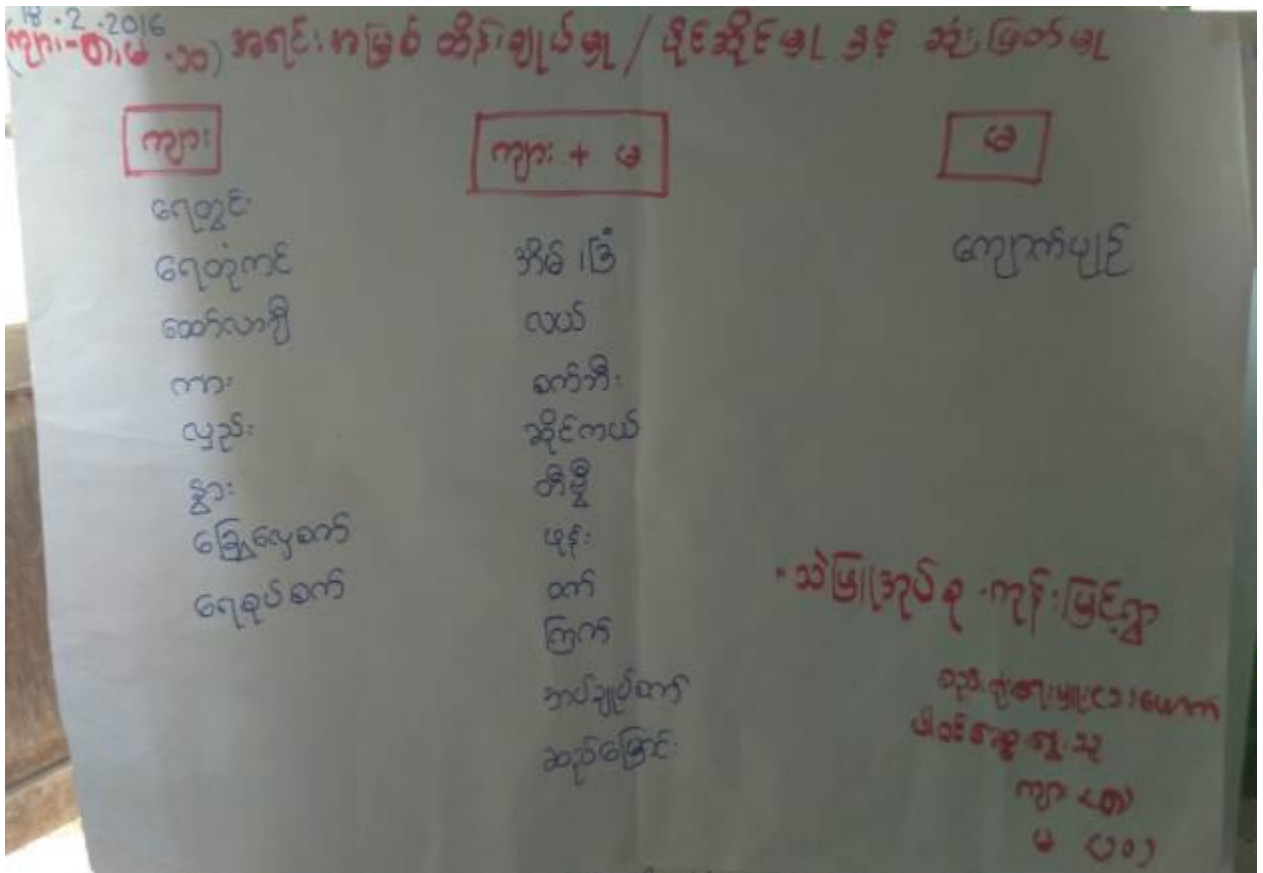 18.2.2016
(ကျား-၈၊မ-၁၀) အရင်းအမြစ် ထိန်းချုပ်မှု / ပိုင်ဆိုင်မှု နှင့် ဆုံးဖြတ်မှု
ကျား
ရေတွင်း
ရေတုံကင်
ထော်လာဂျီ
ကား
လှည်း
နွား
ခြွေလှေ့စက်
ရေစုပ်စက်
ကျား + မ
အိမ် ၊ခြံ
လယ်
စက်ဘီး
ဆိုင်ကယ်
တီဗွီ
ဖုန်း
ဝက်
ကြက်
အပ်ချုပ်စက်
ဆည်မြောင်း
မ
ကျောက်ပျဉ်
သဲဖြူအုပ်စု - ကုန်းမြင့်ရွာ
ပါဝင်ဆွေးနွေးသူ
ကျား (၈)
မ (၁၀)